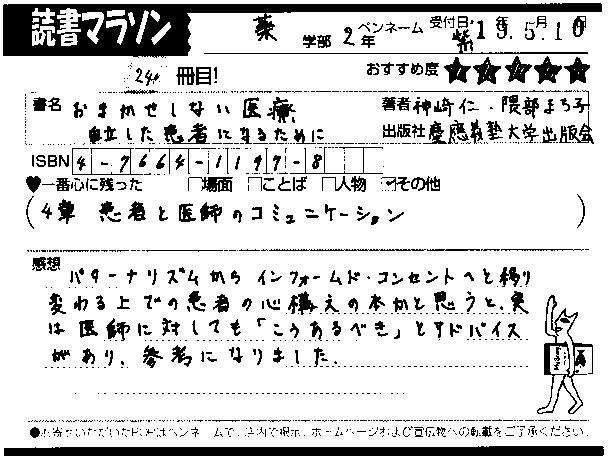 読書マラソン
薬 学部 2年 ペンネーム 紫 受付日 19年5月10日
24 冊目! おすすめ度 ★★★★★
書名 おまかせしない医療
自立した患者になるために
著者 神崎仁・隈部まち子
出版社 慶應義塾大学出版会
ISBN 4-7664-1197-8
♥一番心に残った □場面 □ことば □人物 ☑その他
(4章 患者と医師のコミュニケーション)
感想 パターナリズムから インフォームド・コンセントへと移り
変わる上での患者の心構えの本かと思うと、実
は医師に対しても「こうあるべき」とアドバイス
があり、参考になりました。
●お寄せいただいたPOPはペンネームで、店内で掲示、ホームページおよび宣伝物への転載をご了承ください。